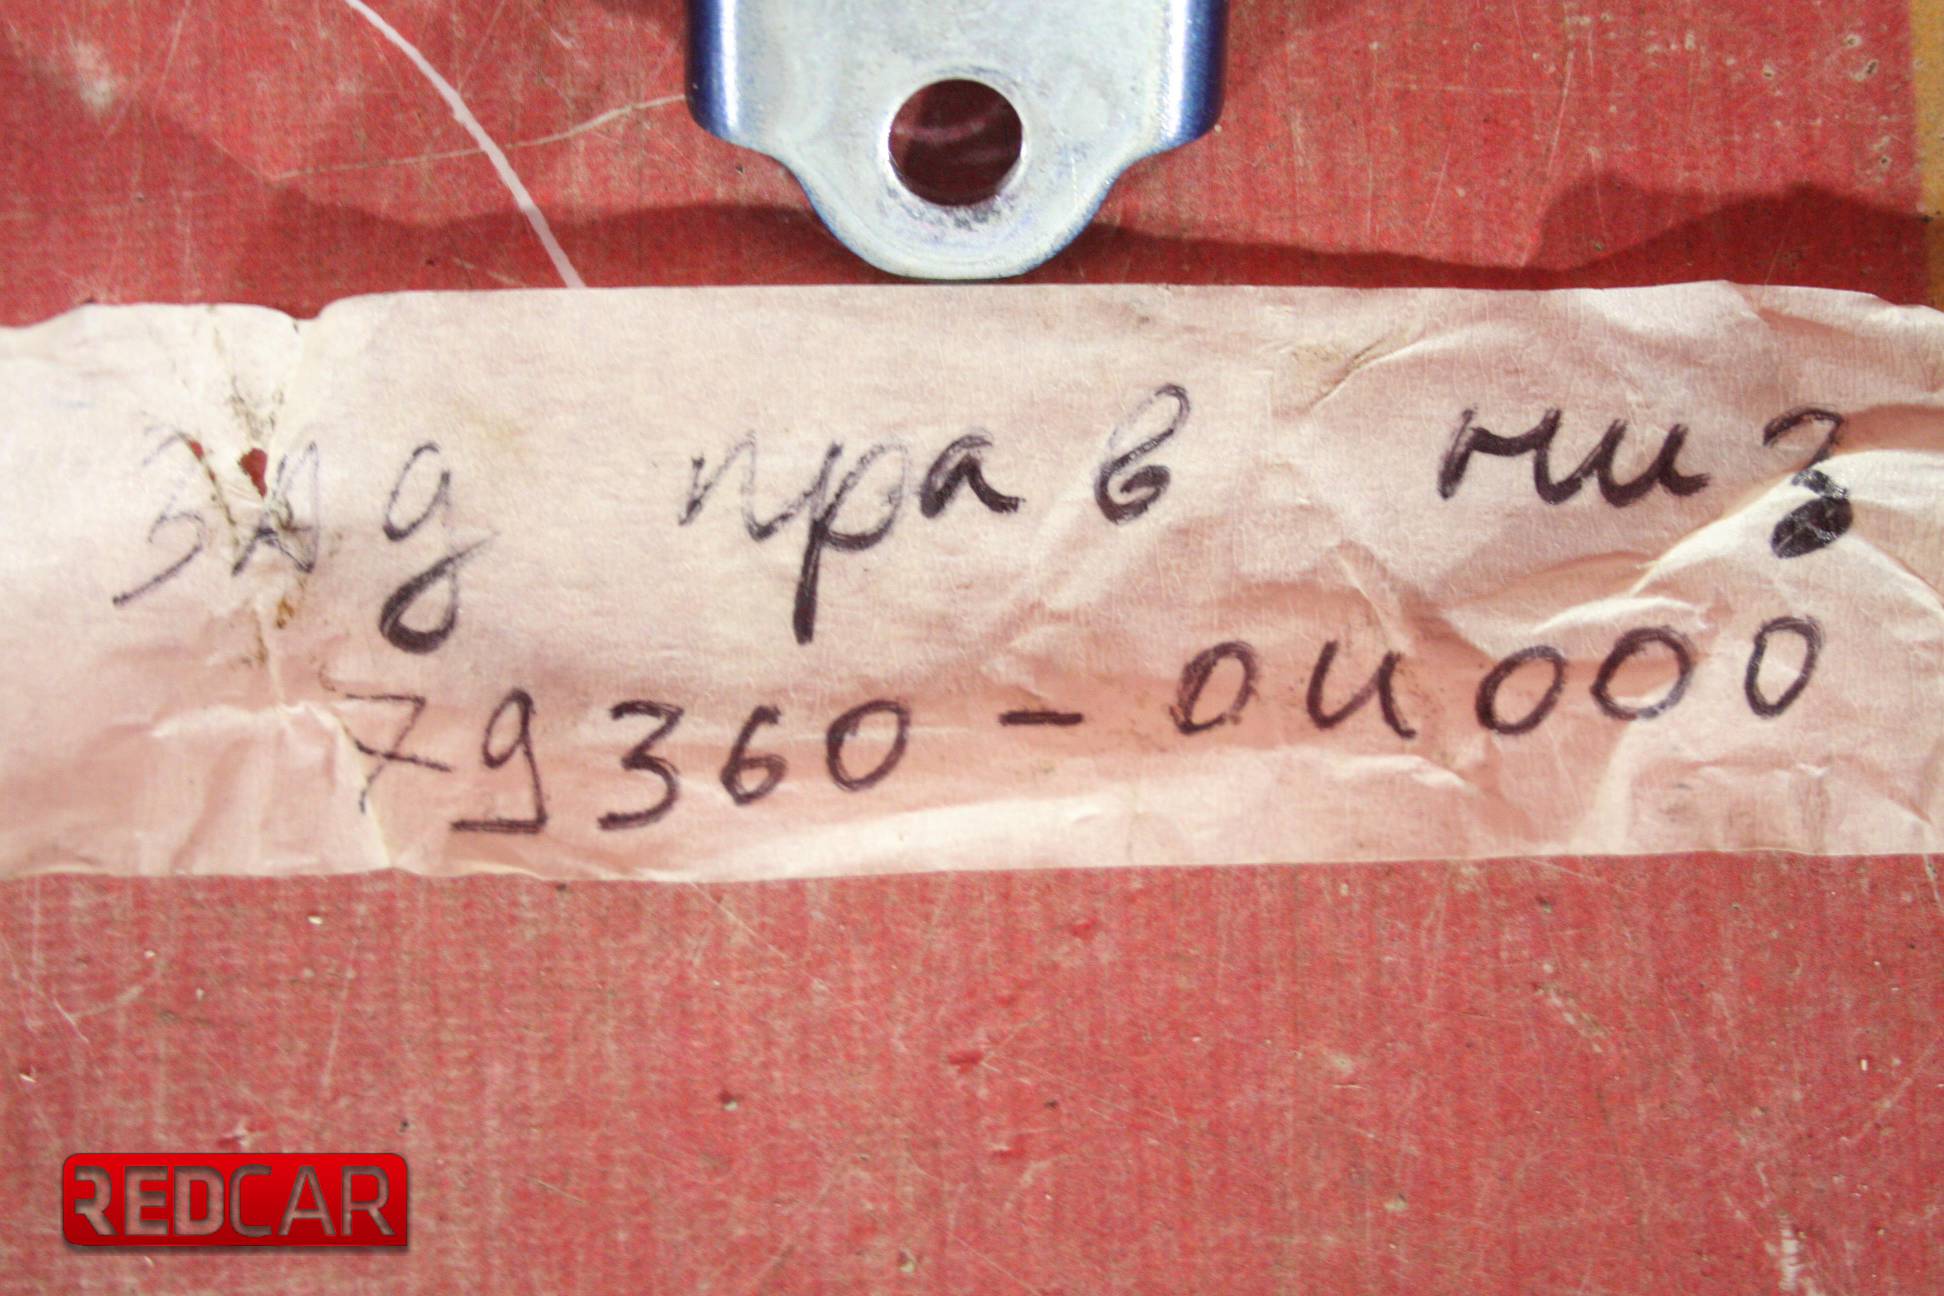 зад прав низ
79360-0U000
REDCAR